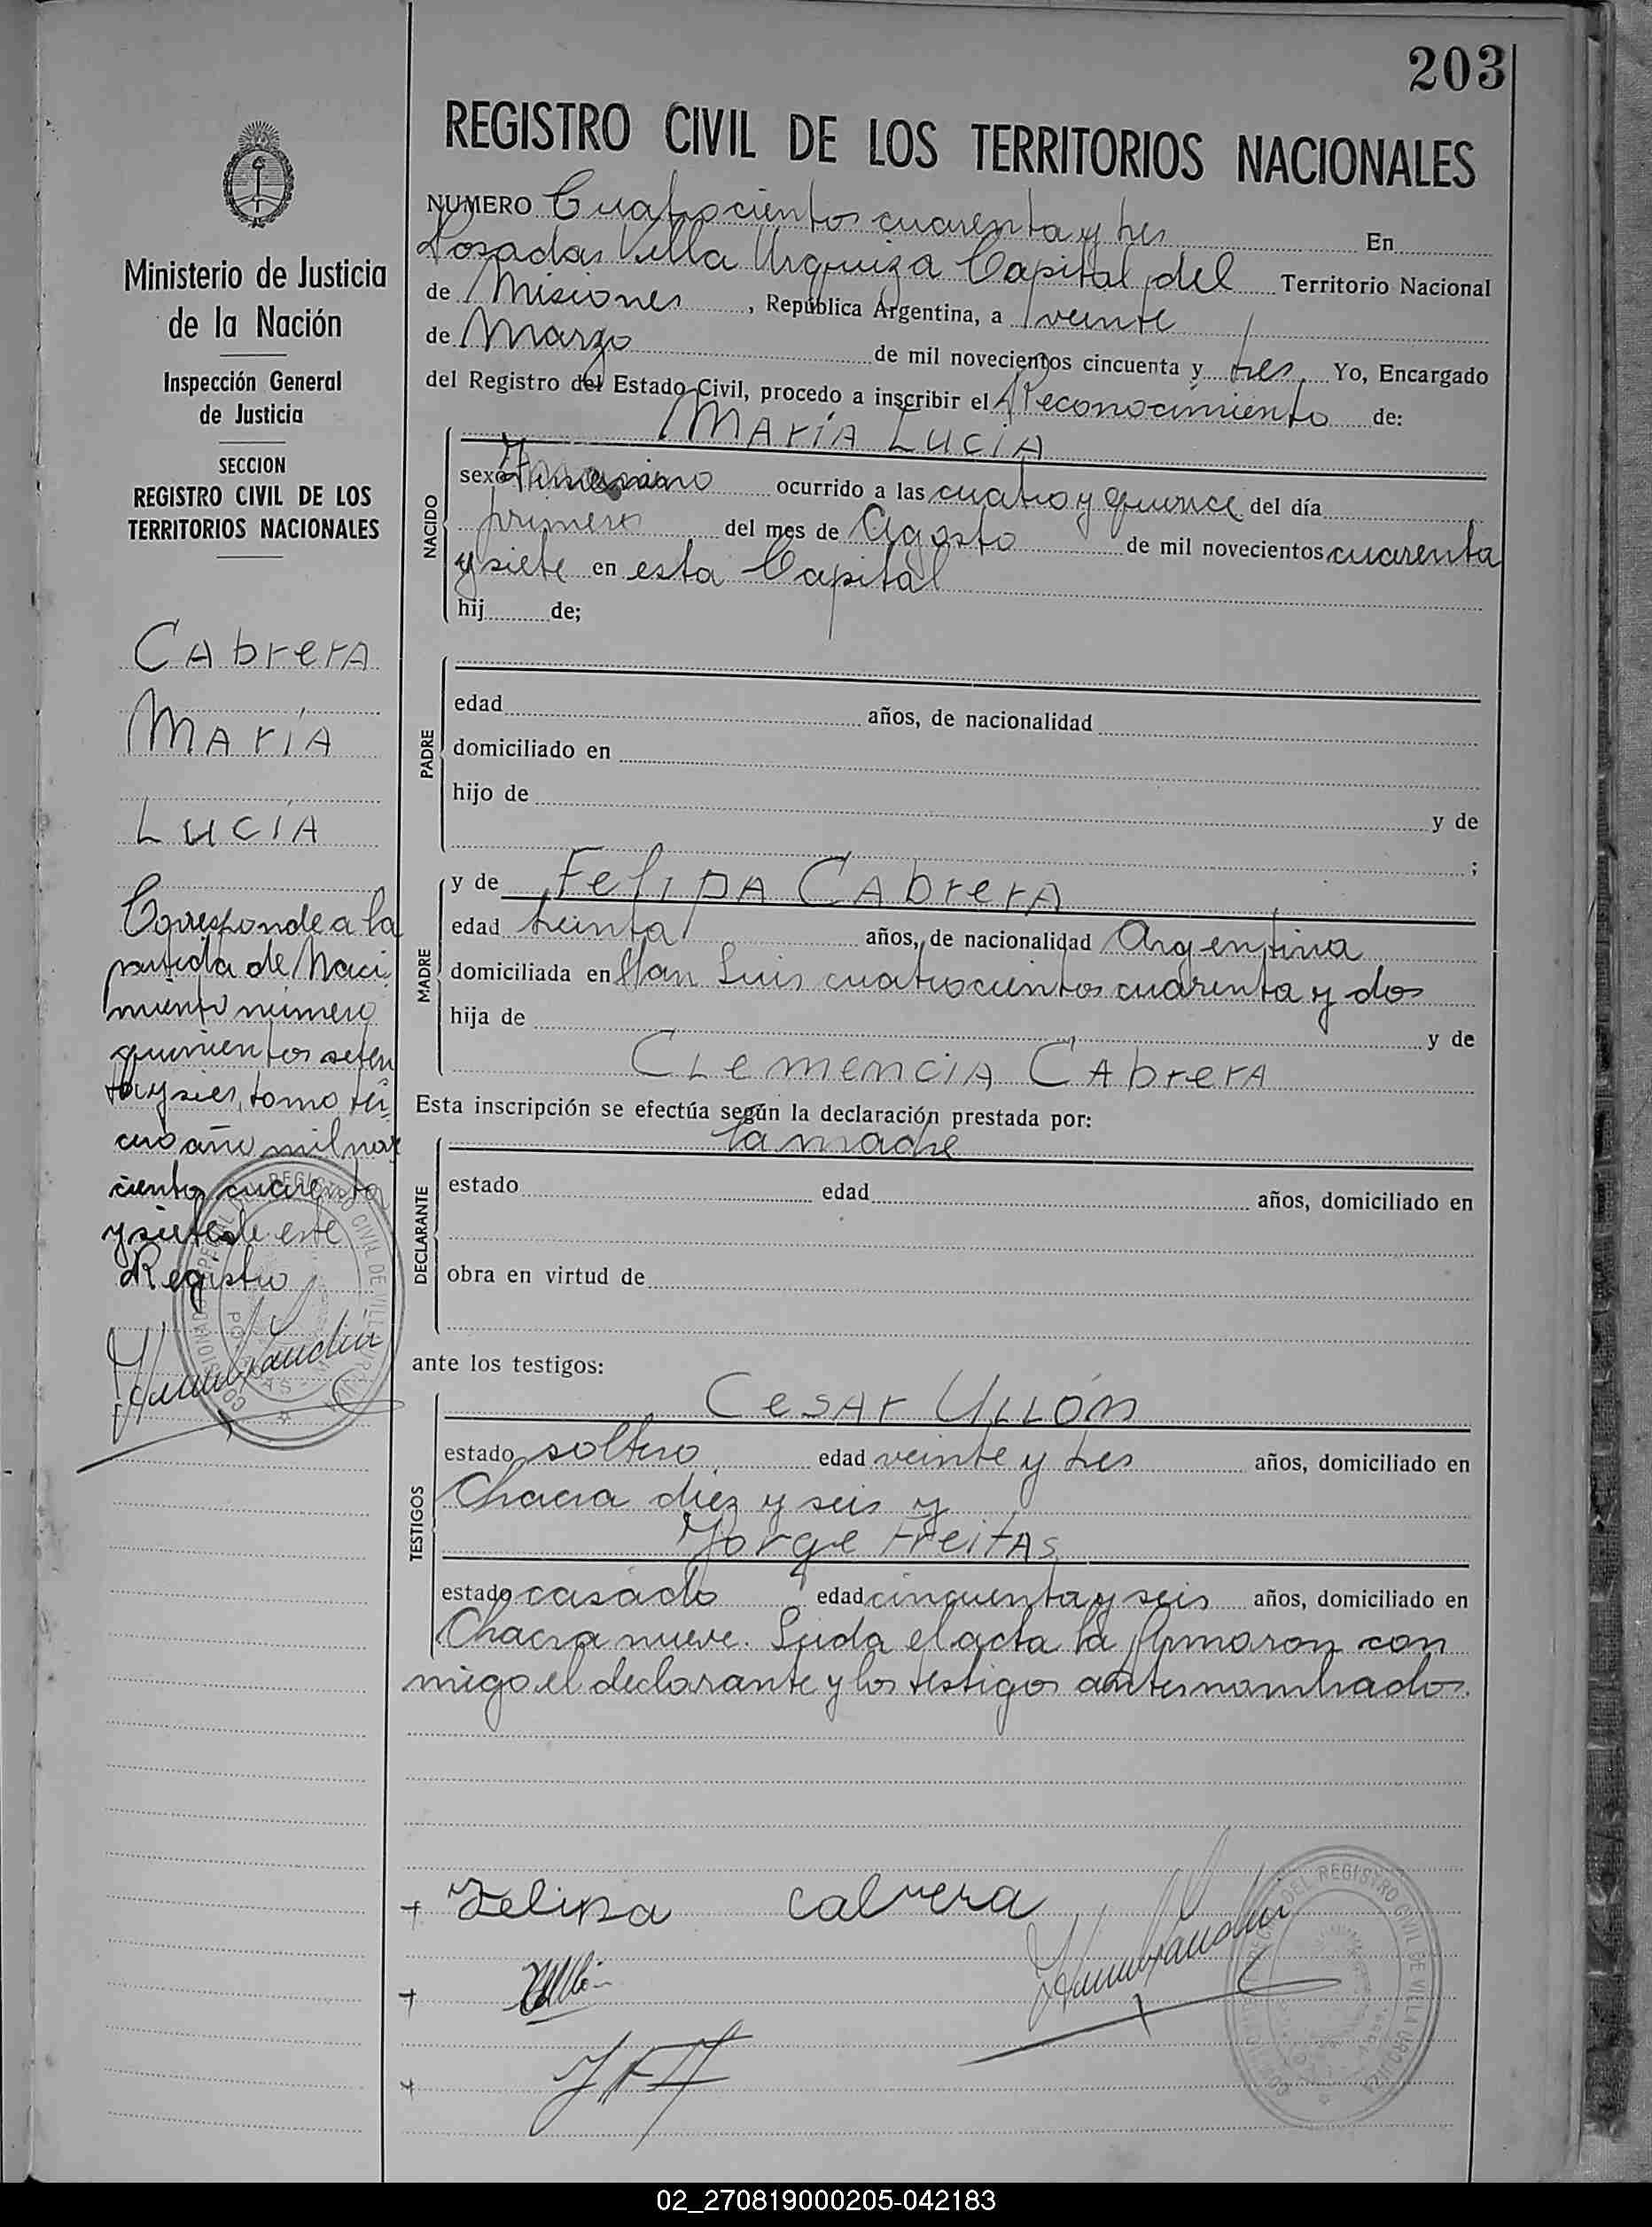 203
REGISTRO CIVIL DE LOS TERRITORIOS NACIONALES
Ministerio de Justicia
de la Nación
Inspección General
de Justicia
SECCION
REGISTRO CIVIL DE LOS
TERRITORIOS NACIONALES
Cabrera
María
Lucía
Corresponde a la
partida de Naci
miento número
quinientos seten
ta y seis, tomo ter
cero año mil nove
cientos cuarenta
y siete de este
Registro
NUMERO Cuatrocientos cuarenta y tres En
Posadas Villa Urquiza Capital del Territorio Nacional
de Misiones, República Argentina, a veinte
de Marzo de mil novecientos cincuenta y tres Yo, Encargado
del Registro del Estado Civil, procedo a inscribir el Reconocimiento de:
NACIDO
María Lucía
sexo ocurrido a las cuatro y quince del día
primero del mes de Agosto de mil novecientos cuarenta
y siete en esta Capital
hij de;
PADRE
edad años, de nacionalidad
domiciliado en
hijo de y de
;
MADRE
y de Felipa Cabrera
edad treinta años, de nacionalidad Argentina
domiciliada en San Luis cuatrocientos cuarenta y dos
hija de y de
Clemencia Cabrera
Esta inscripción se efectúa según la declaración prestada por:
DECLARANTE
la madre
estado edad años, domiciliado en
obra en virtud de
ante los testigos:
TESTIGOS
Cesar Ullón
estado soltero edad veinte y tres años, domiciliado en
Chacra diez y seis y
Jorge Freitas
estado casado edad cincuenta y seis años, domiciliado en
Chacra nueve. Leida el acta la firmaron con
migo el declarante y los testigos antes nombrados.
Felipa Cabrera
02_270819000205-042183